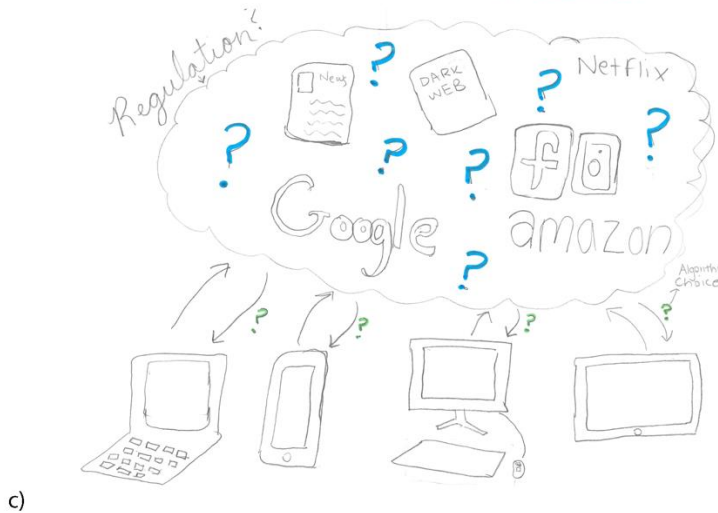 Regulation?
?
News
DARK
WEB
?
Netflix
?
?
?
?
f
Google
amazon
?
Algorithm
Choice
?
?
?
?
c)